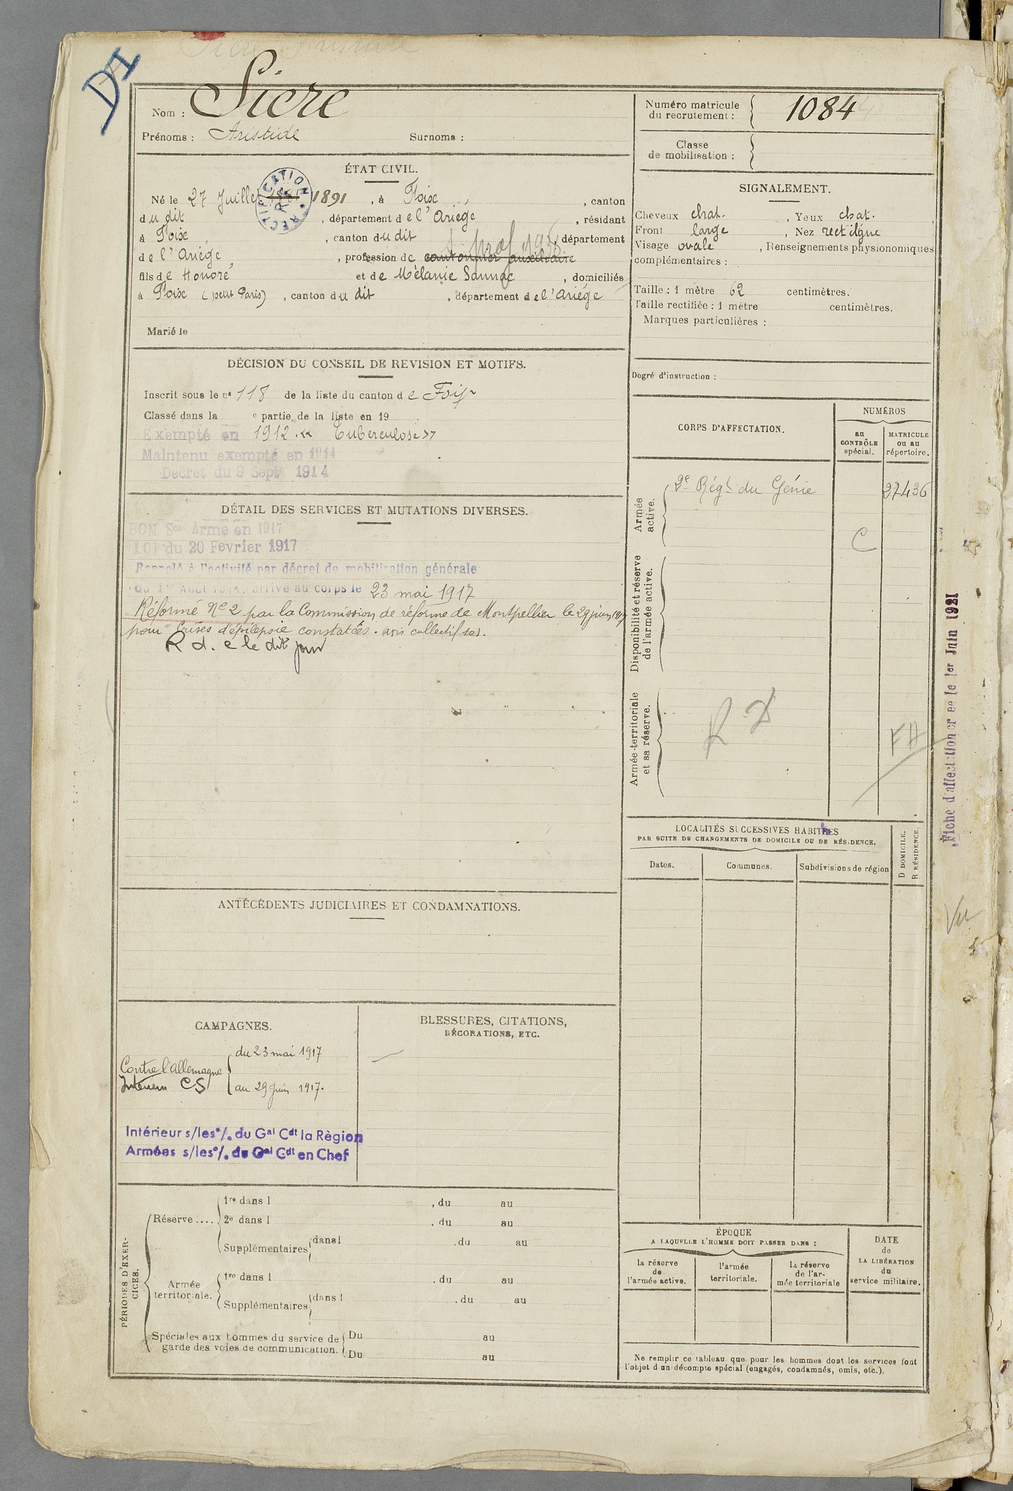 DA
Nom : Sicre
Prénoms : Aristide Surnoms :
Numéro matricule du recrutement : 1084
Classe de mobilisation :
ÉTAT CIVIL.
Né le 27 Juillet 1891, à Foix, canton
RECTIFICATION
dudit, département de l'Ariège, résidant
à Foix, canton dudit, département
de l'Ariège, profession de cantonnier auxiliaire
fils de Honoré et de Mélanie Sannac, domiciliés
à Foix (petit Paris), canton dudit, département de l'Ariège
Marié le
SIGNALEMENT.
Cheveux chat., Yeux chat.
Front large, Nez rectiligne
Visage ovale, Renseignements physionomiques
complémentaires :
Taille : 1 mètre 62 centimètres.
Taille rectifiée : 1 mètre centimètres.
Marques particulières :
Degré d'instruction :
DÉCISION DU CONSEIL DE REVISION ET MOTIFS.
Inscrit sous le n° 118 de la liste du canton de Foix
Classé dans la e partie de la liste en 19
Exempté en 1912 « Tuberculose »
Maintenu exempté en 1914
Décret du 9 Sept 1914
DÉTAIL DES SERVICES ET MUTATIONS DIVERSES.
BON Sce Armé en 1917
LOI du 20 Février 1917
Rappelé à l'activité par décret de mobilisation générale
du 1er Août 1914, arrivé au corps le 23 mai 1917
Réformé N° 2 par la Commission de réforme de Montpellier le 29 juin 1917
pour "Crises d'épilepsie constatées. avis collectif
R d. c le dit jour
CORPS D'AFFECTATION.
NUMÉROS
au CONTRÔLE spécial.
MATRICULE ou au répertoire.
Armée active.
2e Régt du Génie 27436
C
Disponibilité et réserve de l'armée active.
Armée territoriale et sa réserve.
Fiche d'affectation créée le 1er Juin 1921
LOCALITÉS SUCCESSIVES HABITÉES
PAR SUITE DE CHANGEMENTS DE DOMICILE OU DE RÉSIDENCE.
Dates. Communes. Subdivisions de région
D DOMICILE.
R RÉSIDENCE.
Vu
ANTÉCÉDENTS JUDICIAIRES ET CONDAMNATIONS.
CAMPAGNES.
Contre l'Allemagne du 23 mai 1917
Intérieur CS au 29 Juin 1917.
Intérieur s/les o/. du Gal Cdt la Région
Armées s/les o/. du Gal Cdt en Chef
BLESSURES, CITATIONS,
DÉCORATIONS, ETC.
PÉRIODES D'EXERCICES.
Réserve....
1re dans l , du au
2e dans l , du au
Supplémentaires dans l , du au
Armée territoriale.
1re dans l , du au
Supplémentaires dans l , du au
Spéciales aux hommes du service de garde des voies de communication.
Du au
Du au
ÉPOQUE
A LAQUELLE L'HOMME DOIT PASSER DANS :
la réserve de l'armée active.
l'armée territoriale.
la réserve de l'armée territoriale
DATE de LA LIBÉRATION du service militaire.
Ne remplir ce tableau que pour les hommes dont les services font
l'objet d'un décompte spécial (engagés, condamnés, omis, etc.).